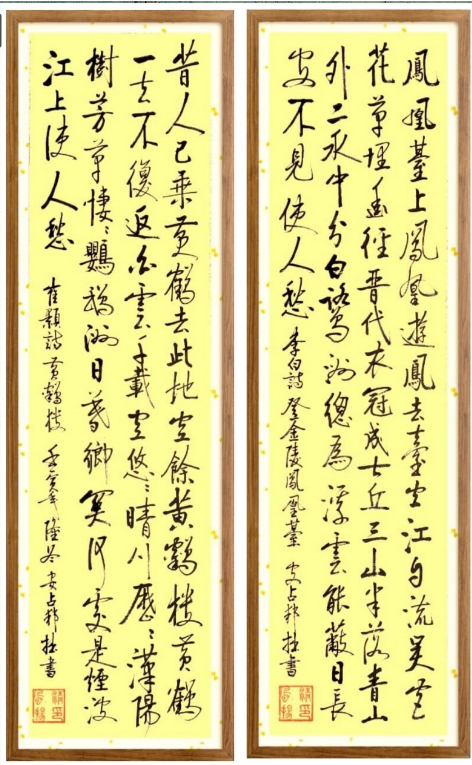 鳳凰臺上鳳凰遊鳳去臺空江自流吳宮
花草埋幽徑晉代衣冠成古丘三山半落青山
外二水中分白鷺洲總為浮雲能蔽日長
安不見使人愁 李白詩登金陵鳳凰臺 安占邦拙書
昔人已乘黄鶴去此地空餘黄鶴樓黄鶴
一去不復返白雲千載空悠〻晴川歷〻漢陽
樹芳草悽〻鸚鵡洲日暮鄉関何處是煙波
江上使人愁 崔顥詩黄鶴樓 壬寅年隆冬安占邦拙書